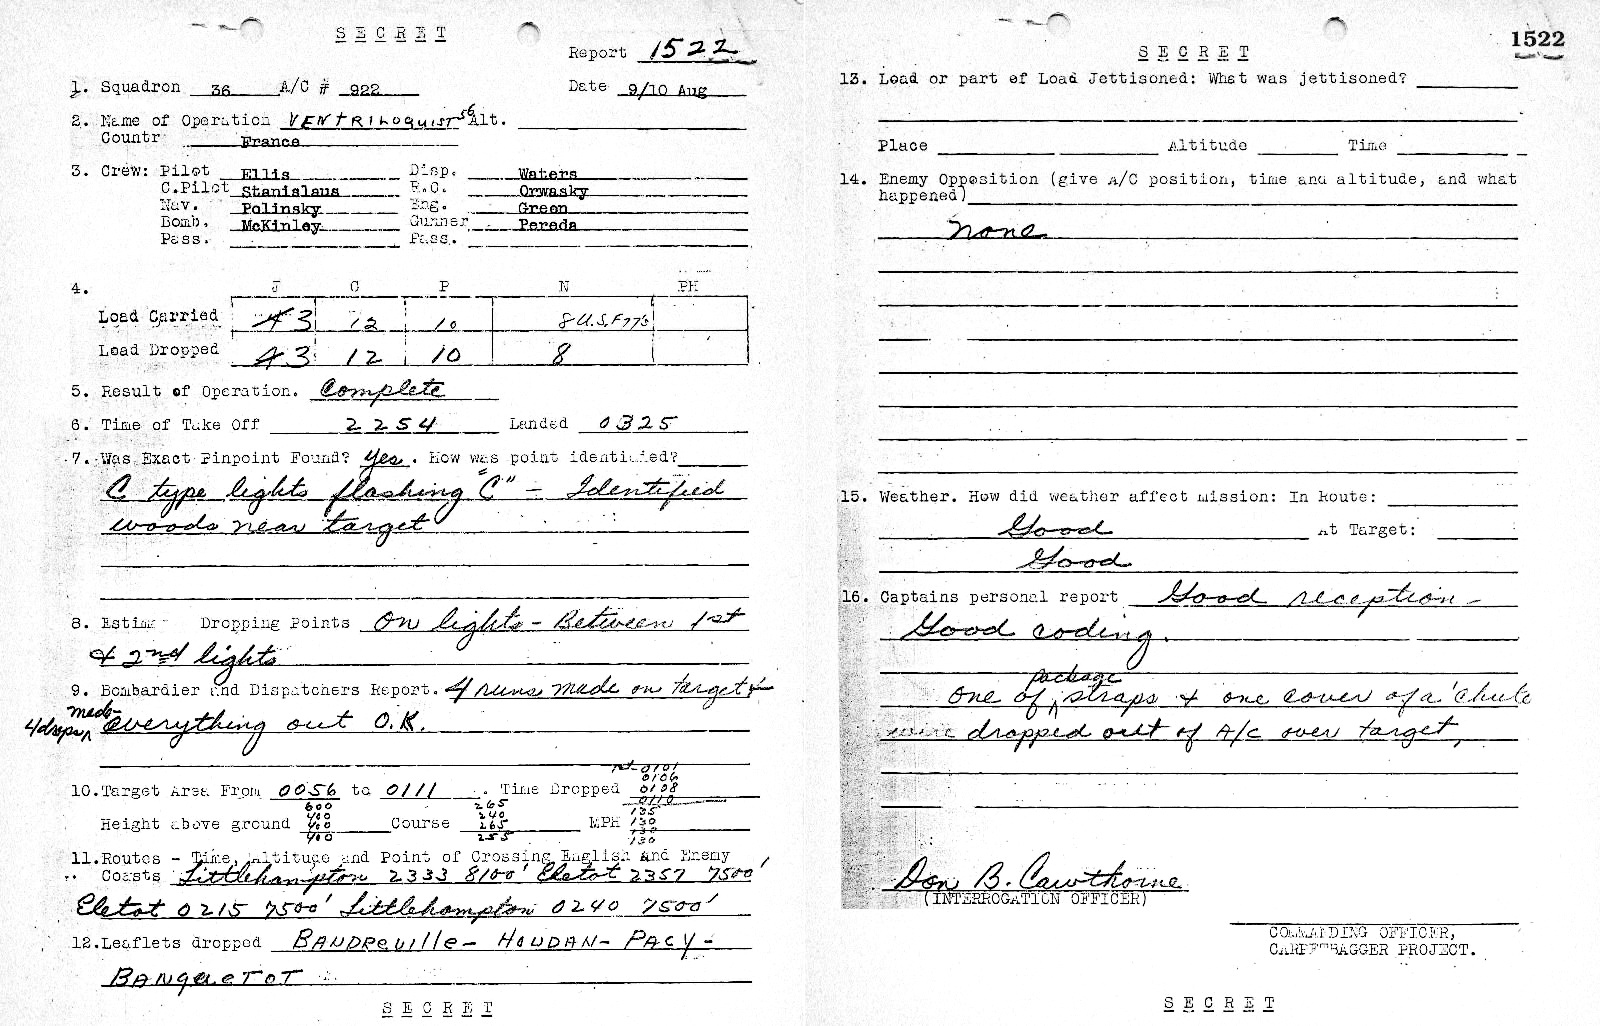 SECRET
Report 1522
1. Squadron 36 A/C # 922 Date 9/10 Aug
2. Name of Operation VENTRILOQUIST 56 Alt.
Countr France
3. Crew: Pilot Ellis Disp. Waters
C.Pilot Stanislaus R.O. Orwasky
Nav. Polinsky Eng. Green
Bomb. McKinley Gunner Pereda
Pass. Pass.
4. J C P N PH
Load Carried 4 3 12 10 8 U.S.F77's
Load Dropped 4 3 12 10 8
5. Result of Operation. Complete
6. Time of Take Off 2254 Landed 0325
7. Was Exact Pinpoint Found? Yes. How was point identified?
C type lights flashing "C" - Identified
woods near target
8. Estim Dropping Points On lights - Between 1st
& 2nd lights
9. Bombardier and Dispatchers Report. 4 runs made on target &
4 drops made - everything out O.K.
1st 0101
0106
10. Target Area From 0056 to 0111. Time Dropped 0108
0110
600 265 135
400 240 130
Height above ground 400 Course 265 MPH 130
400 255 130
11. Routes - Time, Altitude and Point of Crossing English and Enemy
Coasts Littlehampton 2333 8100' Eletot 2357 7500'
Eletot 0215 7500' Littlehampton 0240 7500'
12. Leaflets dropped BAUDREVILLE - HOUDAN - PACY -
BANQUETOT
SECRET
1522
SECRET
13. Load or part of Load Jettisoned: What was jettisoned?
Place Altitude Time
14. Enemy Opposition (give A/C position, time and altitude, and what
happened)
none
15. Weather. How did weather affect mission: In Route:
Good At Target:
Good
16. Captains personal report Good reception -
Good coding.
package
One of straps & one cover of a 'chute
were dropped out of A/C over target,
Don B. Cawthorne
(INTERROGATION OFFICER)
COMMANDING OFFICER,
CARPETBAGGER PROJECT.
SECRET